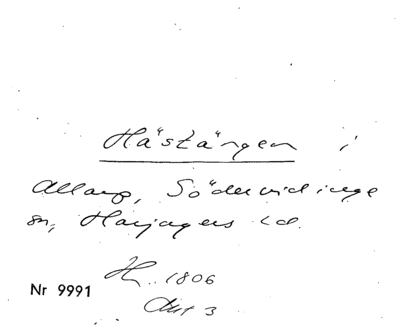 Hästängen i
Allarp, Södervidinge
sn, Harjagers hd.
H.. 1806
Akt 3
Nr 9991